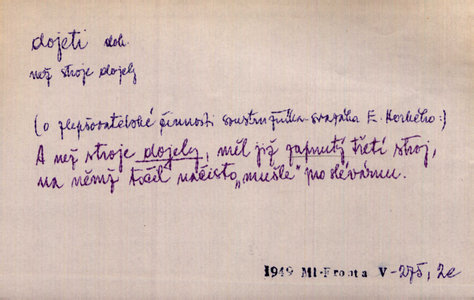 dojeti dok.
než stroje dojely
(o zlepšovatelské činnosti soustružníka-svazáka E. Horkého:)
A než stroje dojely, měl již zapnutý třetí stroj,
na němž točil načisto „mušle" po slévárnu.
1949 Ml.Fronta V-275, 2c